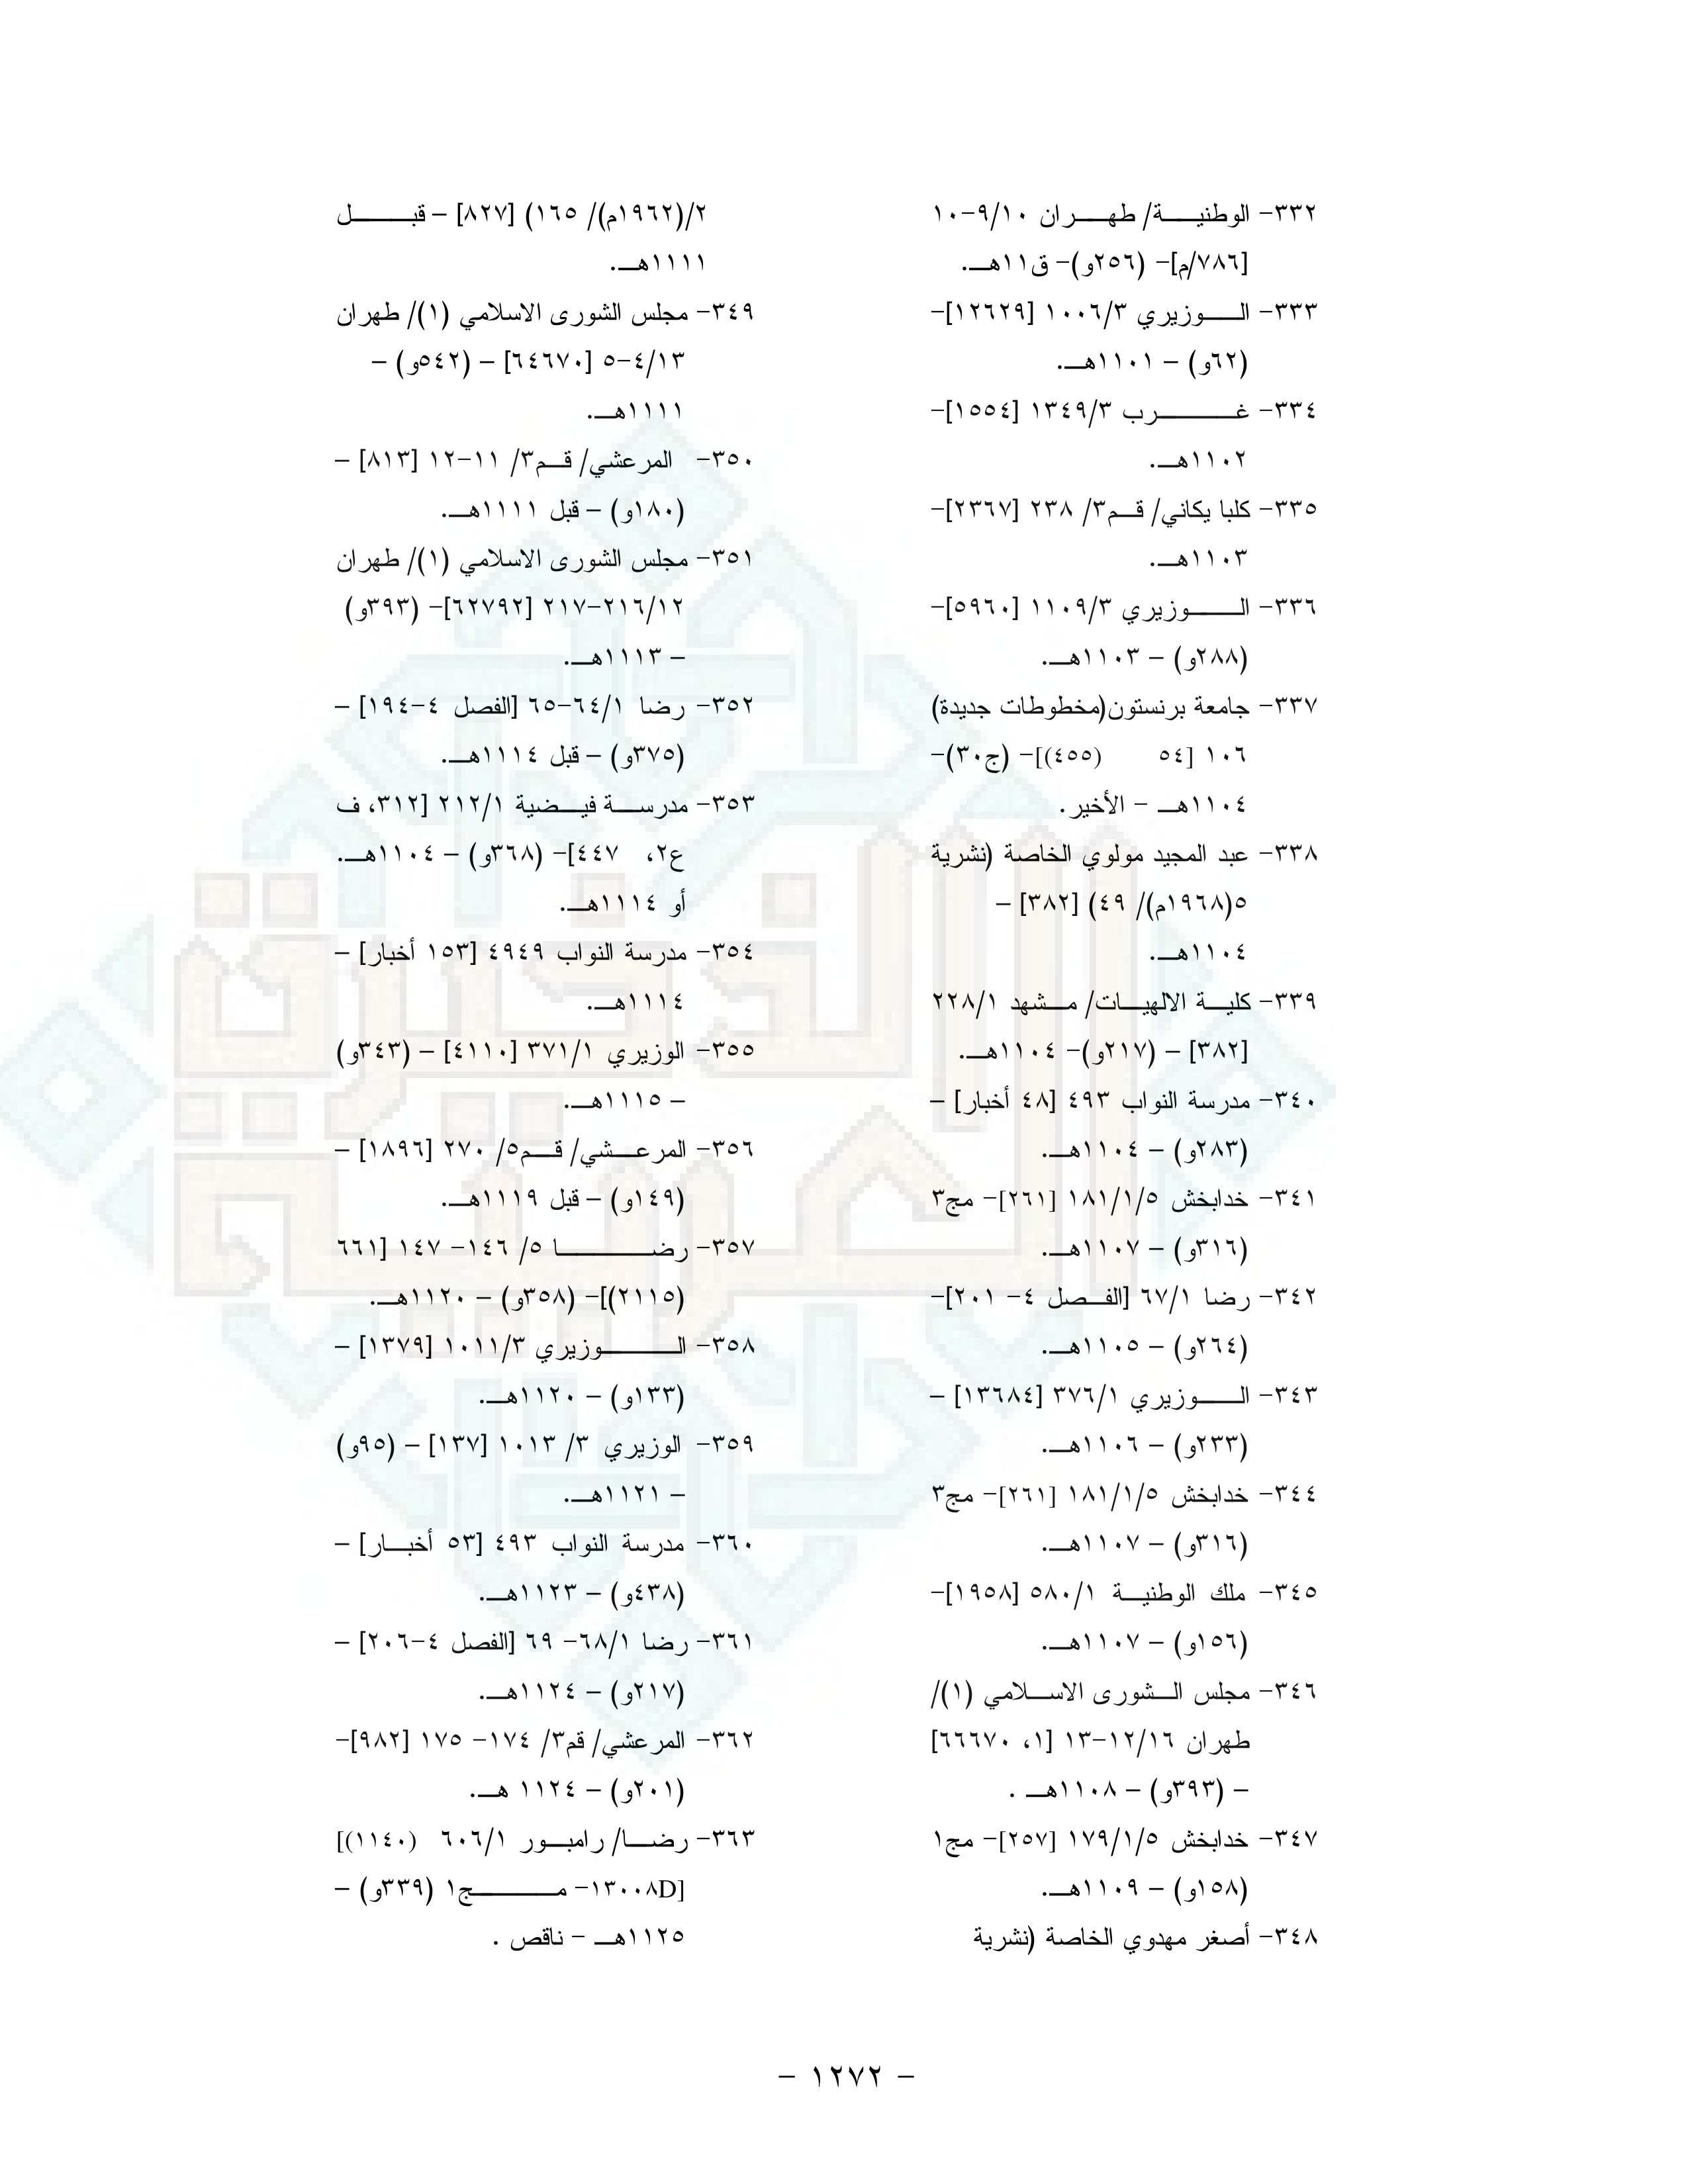 ٣٣٢- الوطنية/ طهران ٩/١٠-١٠
[٧٨٦/م]- (٢٥٦و)- ق١١هـ.
٣٣٣- الوزيري ١٠٠٦/٣ [١٢٦٢٩]-
(٦٢و) - ١١٠١هـ.
٣٣٤- غرب ١٣٤٩/٣ [١٥٥٤]-
١١٠٢هـ.
٣٣٥- كلبا يكاني/ قم٣/ ٢٣٨ [٢٣٦٧]-
١١٠٣هـ.
٣٣٦- الوزيري ١١٠٩/٣ [٥٩٦٠]-
(٢٨٨و) - ١١٠٣هـ.
٣٣٧- جامعة برنستون(مخطوطات جديدة)
١٠٦ [٥٤ (٤٥٥)]- (ج٣٠)-
١١٠٤هـ - الأخير.
٣٣٨- عبد المجيد مولوي الخاصة (نشرية
٥(١٩٦٨م)/ ٤٩) [٣٨٢] -
١١٠٤هـ.
٣٣٩- كلية الالهيات/ مشهد ٢٢٨/١
[٣٨٢] - (٢١٧و)- ١١٠٤هـ.
٣٤٠- مدرسة النواب ٤٩٣ [٤٨ أخبار] -
(٢٨٣و) - ١١٠٤هـ.
٣٤١- خدابخش ١٨١/١/٥ [٢٦١]- مج٣
(٣١٦و) - ١١٠٧هـ.
٣٤٢- رضا ٦٧/١ [الفصل ٤- ٢٠١]-
(٢٦٤و) - ١١٠٥هـ.
٣٤٣- الوزيري ٣٧٦/١ [١٣٦٨٤] -
(٢٣٣و) - ١١٠٦هـ.
٣٤٤- خدابخش ١٨١/١/٥ [٢٦١]- مج٣
(٣١٦و) - ١١٠٧هـ.
٣٤٥- ملك الوطنية ٥٨٠/١ [١٩٥٨]-
(١٥٦و) - ١١٠٧هـ.
٣٤٦- مجلس الشورى الاسلامي (١)/
طهران ١٢/١٦-١٣ [١، ٦٦٦٧٠]
- (٣٩٣و) - ١١٠٨هـ .
٣٤٧- خدابخش ١٧٩/١/٥ [٢٥٧]- مج١
(١٥٨و) - ١١٠٩هـ.
٣٤٨- أصغر مهدوي الخاصة (نشرية
٢/(١٩٦٢م)/ ١٦٥) [٨٢٧] - قبل
١١١١هـ.
٣٤٩- مجلس الشورى الاسلامي (١)/ طهران
٤/١٣-٥ [٦٤٦٧٠] - (٥٤٢و) -
١١١١هـ.
٣٥٠- المرعشي/ قم٣/ ١١-١٢ [٨١٣] -
(١٨٠و) - قبل ١١١١هـ.
٣٥١- مجلس الشورى الاسلامي (١)/ طهران
٢١٦/١٢-٢١٧ [٦٢٧٩٢]- (٣٩٣و)
- ١١١٣هـ.
٣٥٢- رضا ٦٤/١-٦٥ [الفصل ٤-١٩٤] -
(٣٧٥و) - قبل ١١١٤هـ.
٣٥٣- مدرسة فيضية ٢١٢/١ [٣١٢، ف
ع٢، ٤٤٧]- (٣٦٨و) - ١١٠٤هـ.
أو ١١١٤هـ.
٣٥٤- مدرسة النواب ٤٩٤٩ [١٥٣ أخبار] -
١١١٤هـ.
٣٥٥- الوزيري ٣٧١/١ [٤١١٠] - (٣٤٣و)
- ١١١٥هـ.
٣٥٦- المرعشي/ قم٥/ ٢٧٠ [١٨٩٦] -
(١٤٩و) - قبل ١١١٩هـ.
٣٥٧- رضا ٥/ ١٤٦- ١٤٧ [٦٦١
(٢١١٥)]- (٣٥٨و) - ١١٢٠هـ.
٣٥٨- الوزيري ١٠١١/٣ [١٣٧٩] -
(١٣٣و) - ١١٢٠هـ.
٣٥٩- الوزيري ٣/ ١٠١٣ [١٣٧] - (٩٥و)
- ١١٢١هـ.
٣٦٠- مدرسة النواب ٤٩٣ [٥٣ أخبار] -
(٤٣٨و) - ١١٢٣هـ.
٣٦١- رضا ٦٨/١- ٦٩ [الفصل ٤-٢٠٦] -
(٢١٧و) - ١١٢٤هـ.
٣٦٢- المرعشي/ قم٣/ ١٧٤- ١٧٥ [٩٨٢]-
(٢٠١و) - ١١٢٤ هـ.
٣٦٣- رضا/ رامبور ٦٠٦/١ (١١٤٠)]
[١٣٠٠٨D- مج١ (٣٣٩و) -
١١٢٥هـ - ناقص .
- ١٢٧٢ -
الذخيرة
العربية